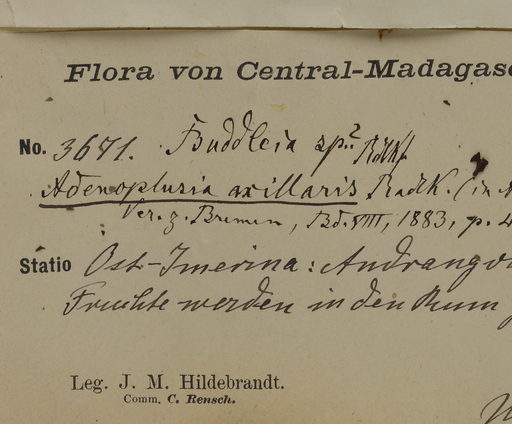 Flora von Central-Madagasc
No. 3671. Buddleia sp.? Radlk.
Adenoplusia axillaris Radlk. (in
Ver. z. Bremen, Bd. VIII, 1883, p. 4
Statio Ost-Imerina: Andrango
Früchte werden in den Rum
Leg. J. M. Hildebrandt.
Comm. C. Rensch.